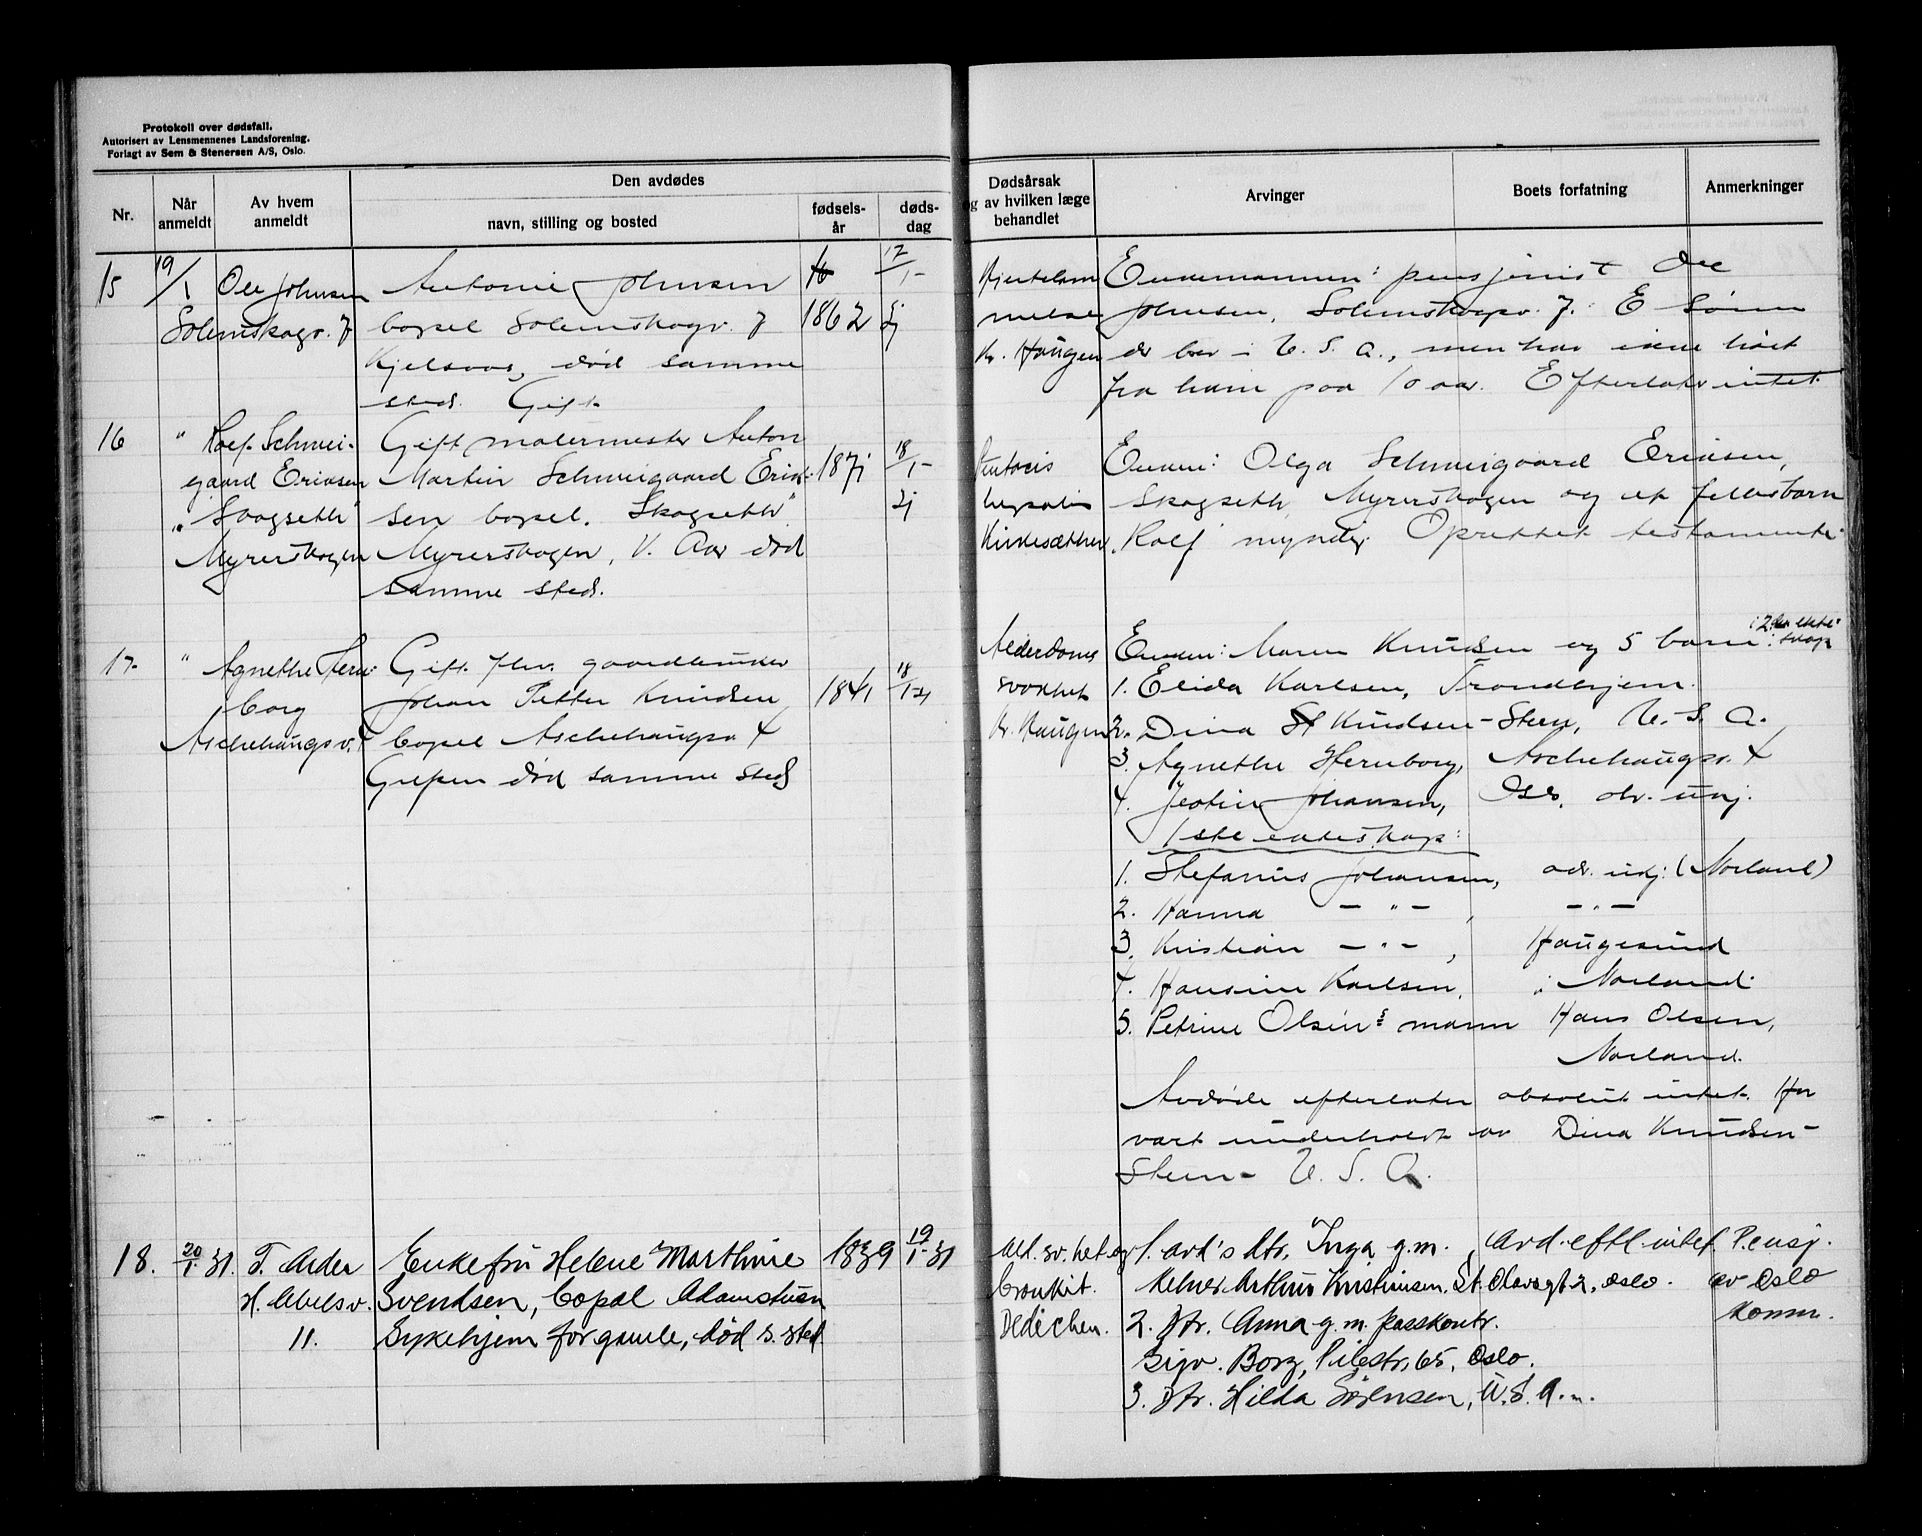 Protokoll over dødsfall.
Autorisert av Lensmennenes Landsforening.
Forlagt av Sem & Stenersen A/S, Oslo.
Nr.
Når anmeldt
Av hvem anmeldt
Den avdødes
navn, stilling og bosted
fødsels-år
døds-dag
Dødsårsak
og av hvilken læge
behandlet
Arvinger
Boets forfatning
Anmerkninger
15 19/1 Ole Johnsen
Solemskogv. 7
Antonie Johnsen
bopel Solemskogv. 7
Kjelsaas, død samme
sted. Gift.
1862
17/1-31
Hjertelam
melse
Kr. Haugen
Enkemannen: pensjonist Ole
Johnsen, Solemskogv. 7. E sønn
der bor i U.S.A., men har ikke hørt
fra ham paa 10 aar. Efterlater intet
16 " Rolf Schwei-
gaard Eriksen
"Skogseth"
Myrerskogen
Gift malermester Anton
Martin Schweigaard Erik-
sen bopel. "Skogseth"
Myrerskogen, V. Aker død
samme sted.
1871
18/1-31
Enken: Olga Schweigaard Eriksen,
Skogseth, Myrerskogen og et fellesbarn
Rolf myndig. Oprettet testamente.
17 " Agnethe Hern-
borg
Aschehougsv. 4
Gift fhv. gaardbruker
Johan Petter Knudsen
bopel Aschehougsv. 4
Grefsen død samme sted
1841
18/1-31
Alderdoms
svakhet
Kr. Haugen
Enken: Maren Knudsen og 5 barn i 2det ekteskap
1. Elida Karlsen, Trondhjem.
2. Dina Knudsen-Steen, U.S.A.
3. Agnethe Hernborg, Aschehougsv. 4
4. Johansen, Oslo, adr. unj.
1ste ekteskap:
1. Stefanus Johansen, adr. unj: (Norland)
2. Hanna — " — , — " —
3. Kristian — " — , Haugesund
4. Hansine Karlsen, i Norland.
5. Petrine Olsen's mann Hans Olsen,
Norland.
Avdøde efterlater absolut intet. Han
vart underholdt av Dina Knudsen-
Steen - U.S.A.
18. 20/1 31. T. Arder
H. Abelsv.
11.
Enkefru Helene Marthine
Svendsen, bopæl Adamstuen
Sykehjem for gamle, død s. sted
1839
19/1-31
Ald.sv.het og
bronkit.
Dedichen.
1. avd's dtr. Inga g.m.
Kelner Arthur Kristiansen, St. Olavsgt 2, Oslo.
2. Dtr. Anna g.m. passkontr.
Sigv. Borg, Pilestr. 65, Oslo.
3. Dtr. Hilda Sørensen, U.S.A.
Avd. eftl intet.
Pensj.
av Oslo
Komm.